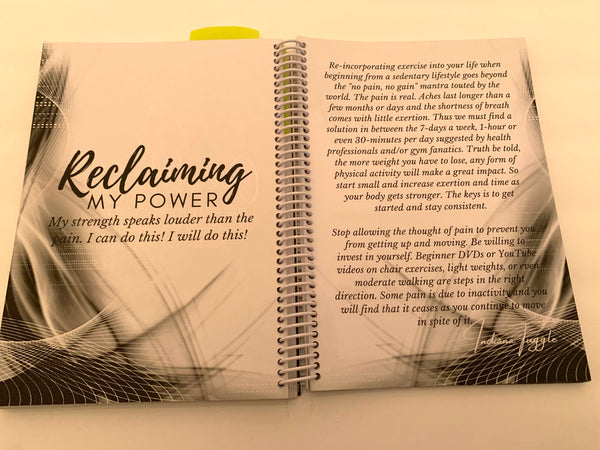 Reclaiming
MY POWER
My strength speaks louder than the
pain. I can do this! I will do this!
Re-incorporating exercise into your life when
beginning from a sedentary lifestyle goes beyond
the "no pain, no gain" mantra touted by the
world. The pain is real. Aches last longer than a
few months or days and the shortness of breath
comes with little exertion. Thus we must find a
solution in between the 7-days a week, 1-hour or
even 30-minutes per day suggested by health
professionals and/or gym fanatics. Truth be told,
the more weight you have to lose, any form of
physical activity will make a great impact. So
start small and increase exertion and time as
your body gets stronger. The keys is to get
started and stay consistent.
Stop allowing the thought of pain to prevent you
from getting up and moving. Be willing to
invest in yourself. Beginner DVDs or YouTube
videos on chair exercises, light weights, or even
moderate walking are steps in the right
direction. Some pain is due to inactivity and you
will find that it ceases as you continue to move
in spite of it.
Indiana Tuggle